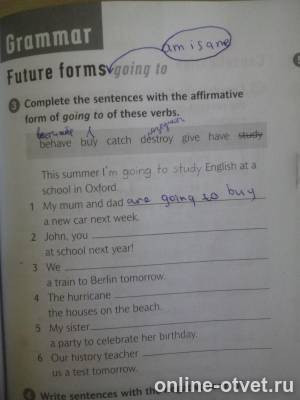 Grammar
am is are
Future forms going to
3 Complete the sentences with the affirmative
form of going to of these verbs.
behave buy catch destroy give have study
This summer I'm going to study English at a
school in Oxford.
1 My mum and dad are going to buy
a new car next week.
2 John, you
at school next year!
3 We
a train to Berlin tomorrow.
4 The hurricane
the houses on the beach.
5 My sister
a party to celebrate her birthday.
6 Our history teacher
us a test tomorrow.
4 Write sentences with the
online-otvet.ru